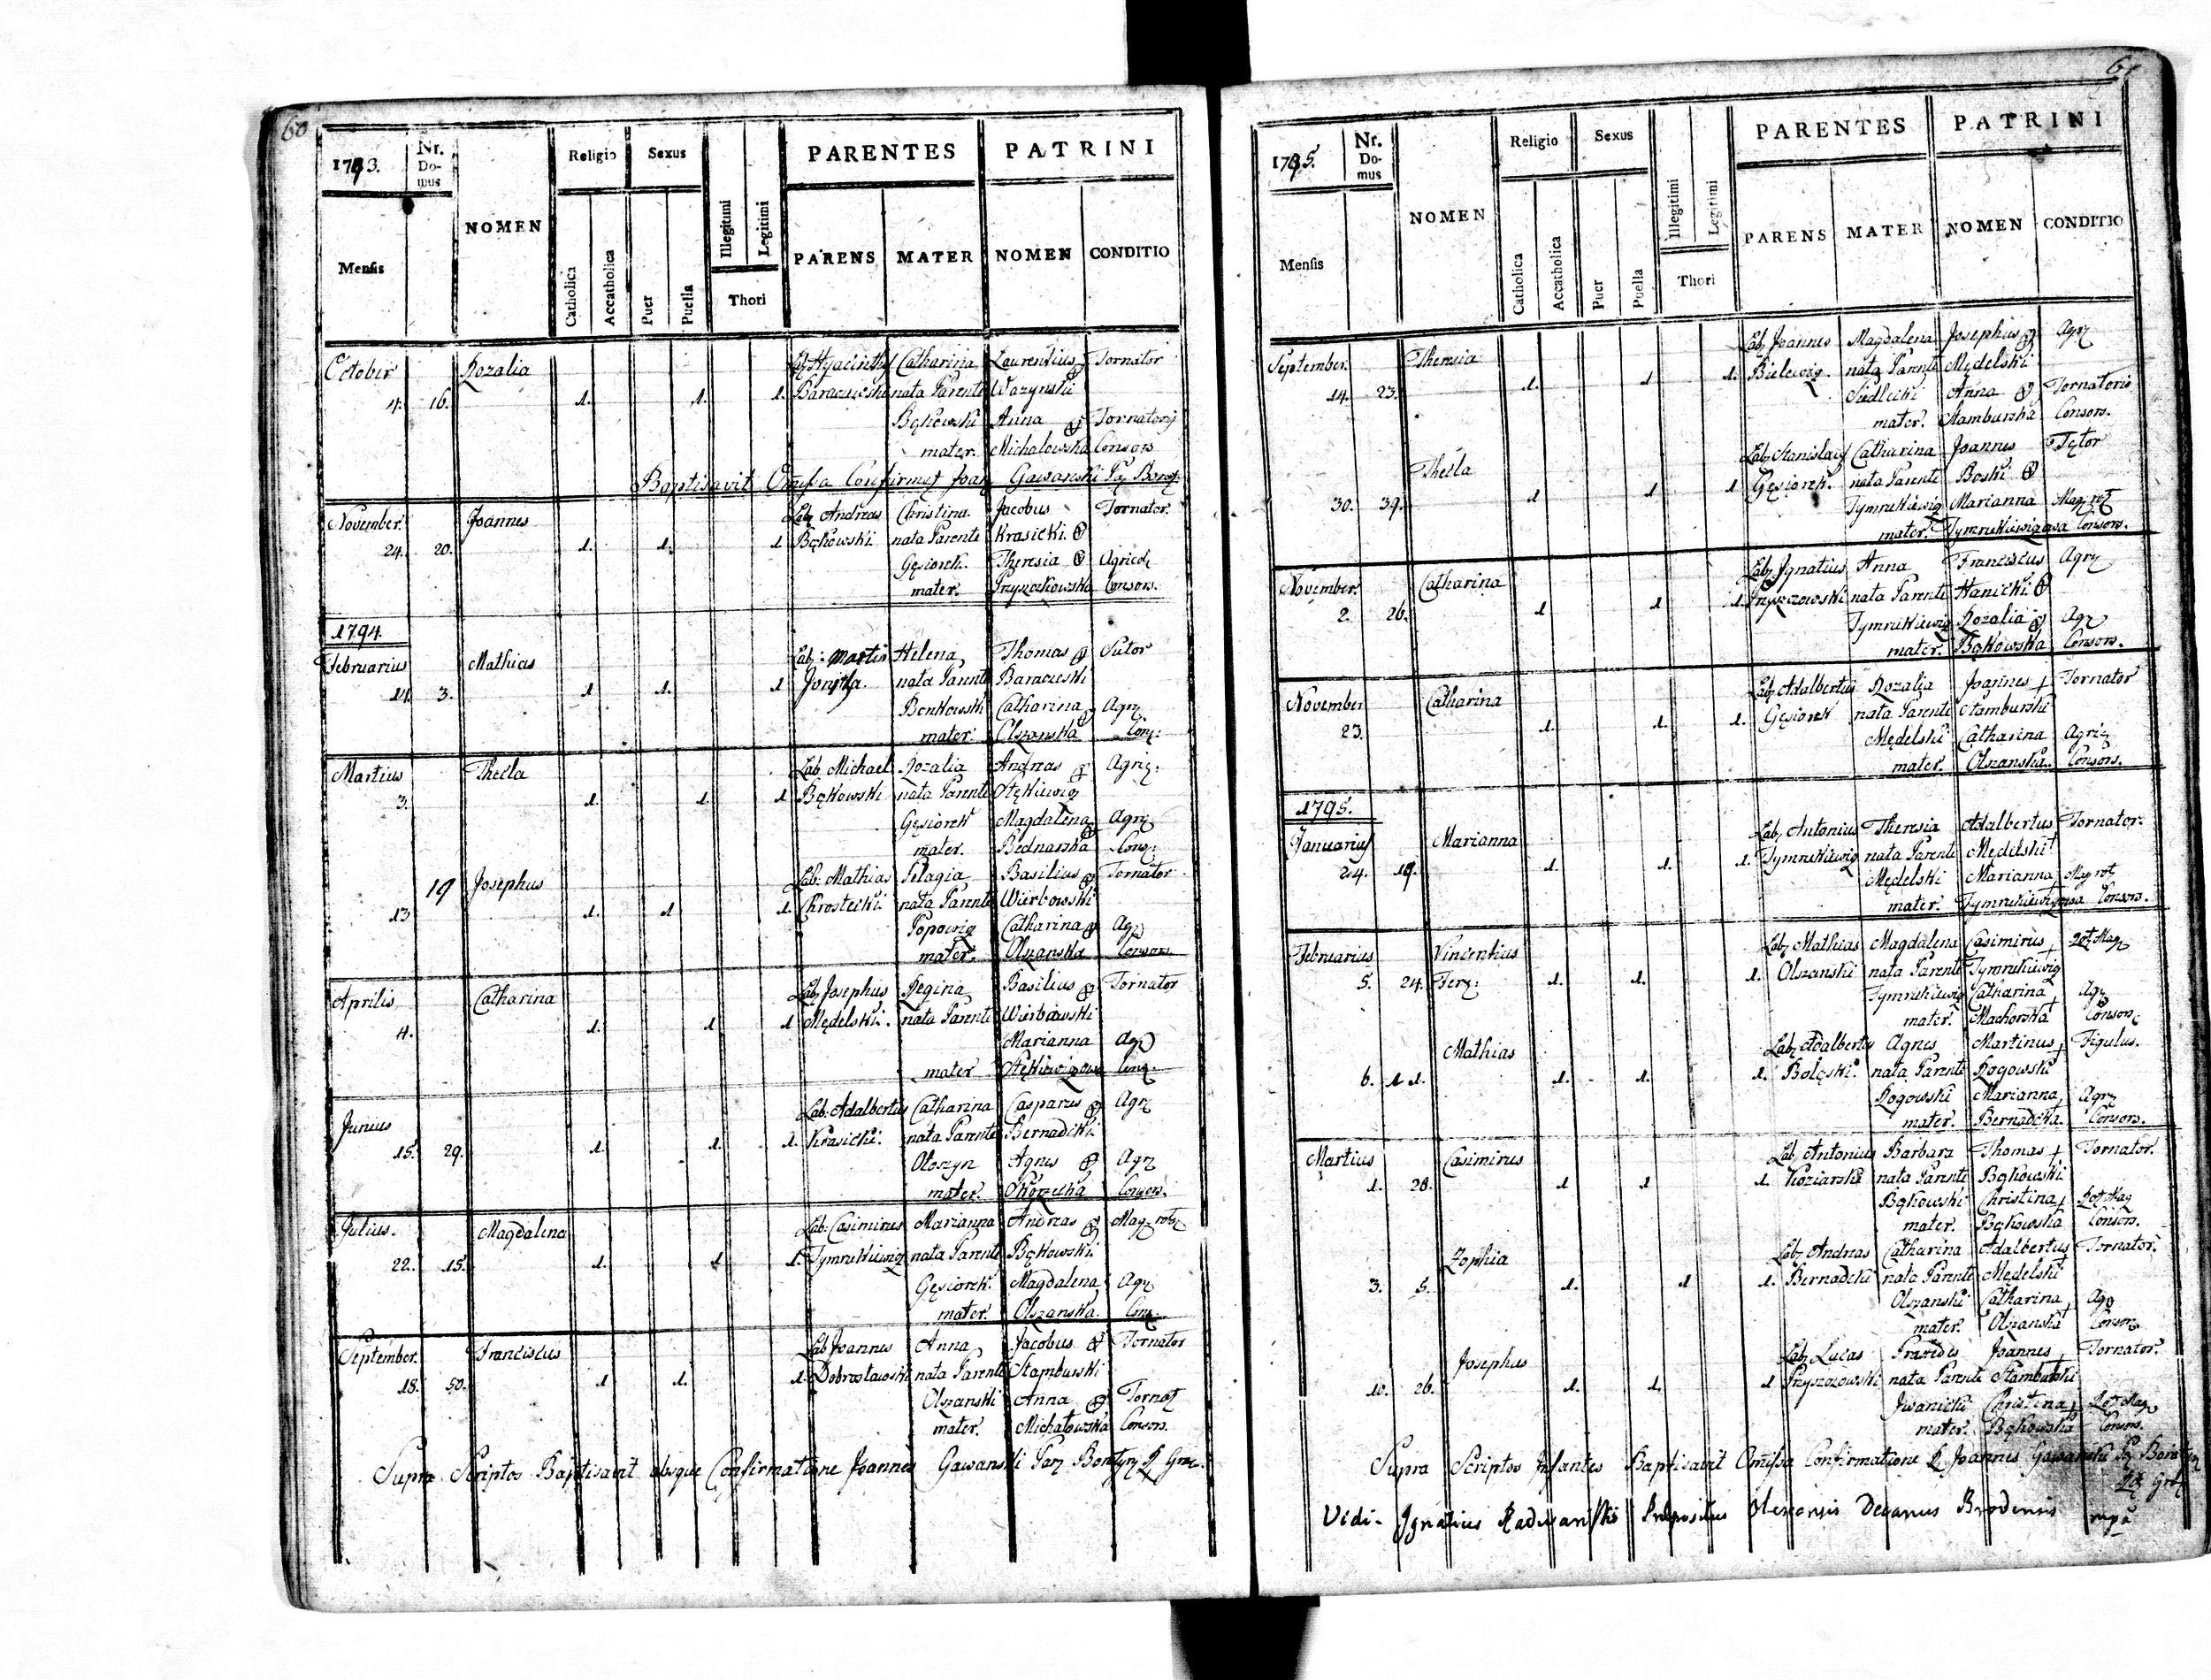 60
1793.
Nr. Domus
NOMEN
Religio
Sexus
PARENTES
PATRINI
Mensis
Catholica
Accatholica
Puer
Puella
Illegitimi
Legitimi
Thori
PARENS
MATER
NOMEN
CONDITIO
October Rozalia Lab Hyacinthus Catharina Laurentius Tornator
4. 16. 1. 1. 1. nata Parente Wazynski
Bąkowski Anna
mater. Michalowska Consors
Baptisavit Omissa Gawanski
November. Joannes Lab Andreas Christina Jacobus Tornator.
24. 20. 1. 1. 1 Bąkowski nata Parente Krasicki.
Gęsiorek. Theresia Agricol
mater. Przyszczkowska Consors.
1794.
Februarius Mathias Lab: Martin Helena Thomas Sutor
14. 3. 1 1. 1 nata Parente
Bonkowski Catharina Agri
mater. Olszanska Con:
Martius Thecla Lab Michael Rozalia Andreas Agric:
3. 1. 1. 1 Bąkowski nata Parente
Gęsiorek Magdalena Agri
mater. Bednarska Cons:
19 Josephus Lab: Mathias Pelagia Basilius Tornator
13 1. 1 1. Chrostecki nata Parente Wierbowski
Catharina Agr
mater. Olszanska Consors
Aprilis Catharina Lab Josephus Regina Basilius Tornator
4. 1. 1 1 Mędelski. nata Parente Wierbowski
Marianna Agr
mater Cons.
Junius Lab: Adalbertus Catharina Casparus Agr
15. 29. 1. 1. 1. Krasicki. nata Parente Bernadcki
Oloszyn Agnes Agr
mater. Consors.
Julius. Magdalena Lab: Casimirus Marianna Andreas Mag: rot
22. 15. 1. 1 1. Tymrukiewicz nata Parente Bąkowski
Gęsiorek. Magdalena Agr
mater. Olszanska. Cons.
September. Franciscus Lab Joannes Anna Jacobus Tornator
18. 50. 1 1. 1. Dobrostawski nata Parente Stamburski
Olszanski Anna Tornat
mater. Michałowska Consors.
Supra Scriptos Baptisavit absque Confirmatione Joannes Gawanski
61
1795.
Nr. Domus
NOMEN
Religio
Sexus
PARENTES
PATRINI
Mensis
Catholica
Accatholica
Puer
Puella
Illegitimi
Legitimi
Thori
PARENS
MATER
NOMEN
CONDITIO
September. Theresia Lab Joannes Magdalena Josephus Agr
14. 23. 1. 1 1. nata Parente Mędelski
Siedlecki Anna Tornatoris
mater. Stamburska Consors.
Thecla Lab Stanislaus Catharina Joannes
30. 39. 1 1 1 Gęsiorek. nata Parente Boski
Tymrukiewicz Marianna Mag: rot
mater. Tymrukiewiczowa Consors.
November. Catharina Lab Ignatius Anna Franciscus Agr
2. 26. 1 1 1. nata Parente Hanicki
Tymrukiewicz Rozalia Agr
mater. Bąkowska Consors.
November Catharina Lab Adalbertus Rozalia Joannes Tornator
23. 1. 1. 1. Gęsiorek nata Parente Stamburski
Mędelski Catharina Agric
mater. Olszanska. Consors.
1795.
Januarius Marianna Lab Antonius Theresia Adalbertus Tornator.
24. 19. 1. 1. 1. Tymrukiewicz nata Parente Mędelski
Mędelski Marianna Mag rot
mater. Tymrukiewiczowa Consors.
Februarius Vincentius Lab Mathias Magdalena Casimirus Rot Mag
5. 24. Fer: 1. 1. 1. Olszanski nata Parente Tymrukiewicz
Tymrukiewicz Catharina Agr
mater. Machorska Consors
Mathias Lab Adalbertus Agnes Martinus Figulus.
6. 11. 1. 1. 1. nata Parente Rogowski
Rogowski Marianna Agr
mater. Bernadcka. Consors.
Martius Casimirus Lab Antonius Barbara Thomas Tornator.
1. 28. 1 1 1. Koziarski nata Parente Bąkowski
Bąkowski Christina Rot Mag
mater. Bąkowska Consors.
Zophia Lab Andreas Catharina Adalbertus Tornator.
3. 5. 1. 1 1. Bernadcki nata Parente Mędelski
Olszanski Catharina Agr
mater. Olszanska Consors
Josephus Lab Lucas Praxedis Joannes Tornator.
10. 26. 1. 1. 1 Przyszozowski nata Parente Stamburski
Iwanicki Christina Rot Mag
mater. Bąkowska Consors.
Supra Scriptos Infantes Baptisavit Omissa Confirmatione Joannes Gawanski
Vidi. Ignatius Praepositus Olescensis Decanus Brodensis mpa